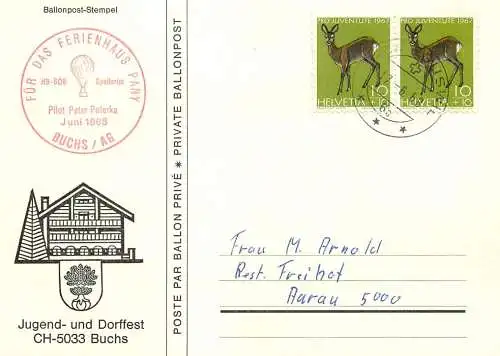 Ballonpost-Stempel
FÜR DAS FERIENHAUS PANY
HB-BOB
Pilot Peter Peterka
Juni 1968
BUCHS / AG
Jugend- und Dorffest
CH-5033 Buchs
POSTE PAR BALLON PRIVÉ * PRIVATE BALLONPOST
PRO JUVENTUTE 1967
10
HELVETIA +10
PRO JUVENTUTE 1967
10
HELVETIA +10
Frau M. Arnold
Rest. Freihof
Aarau 5000